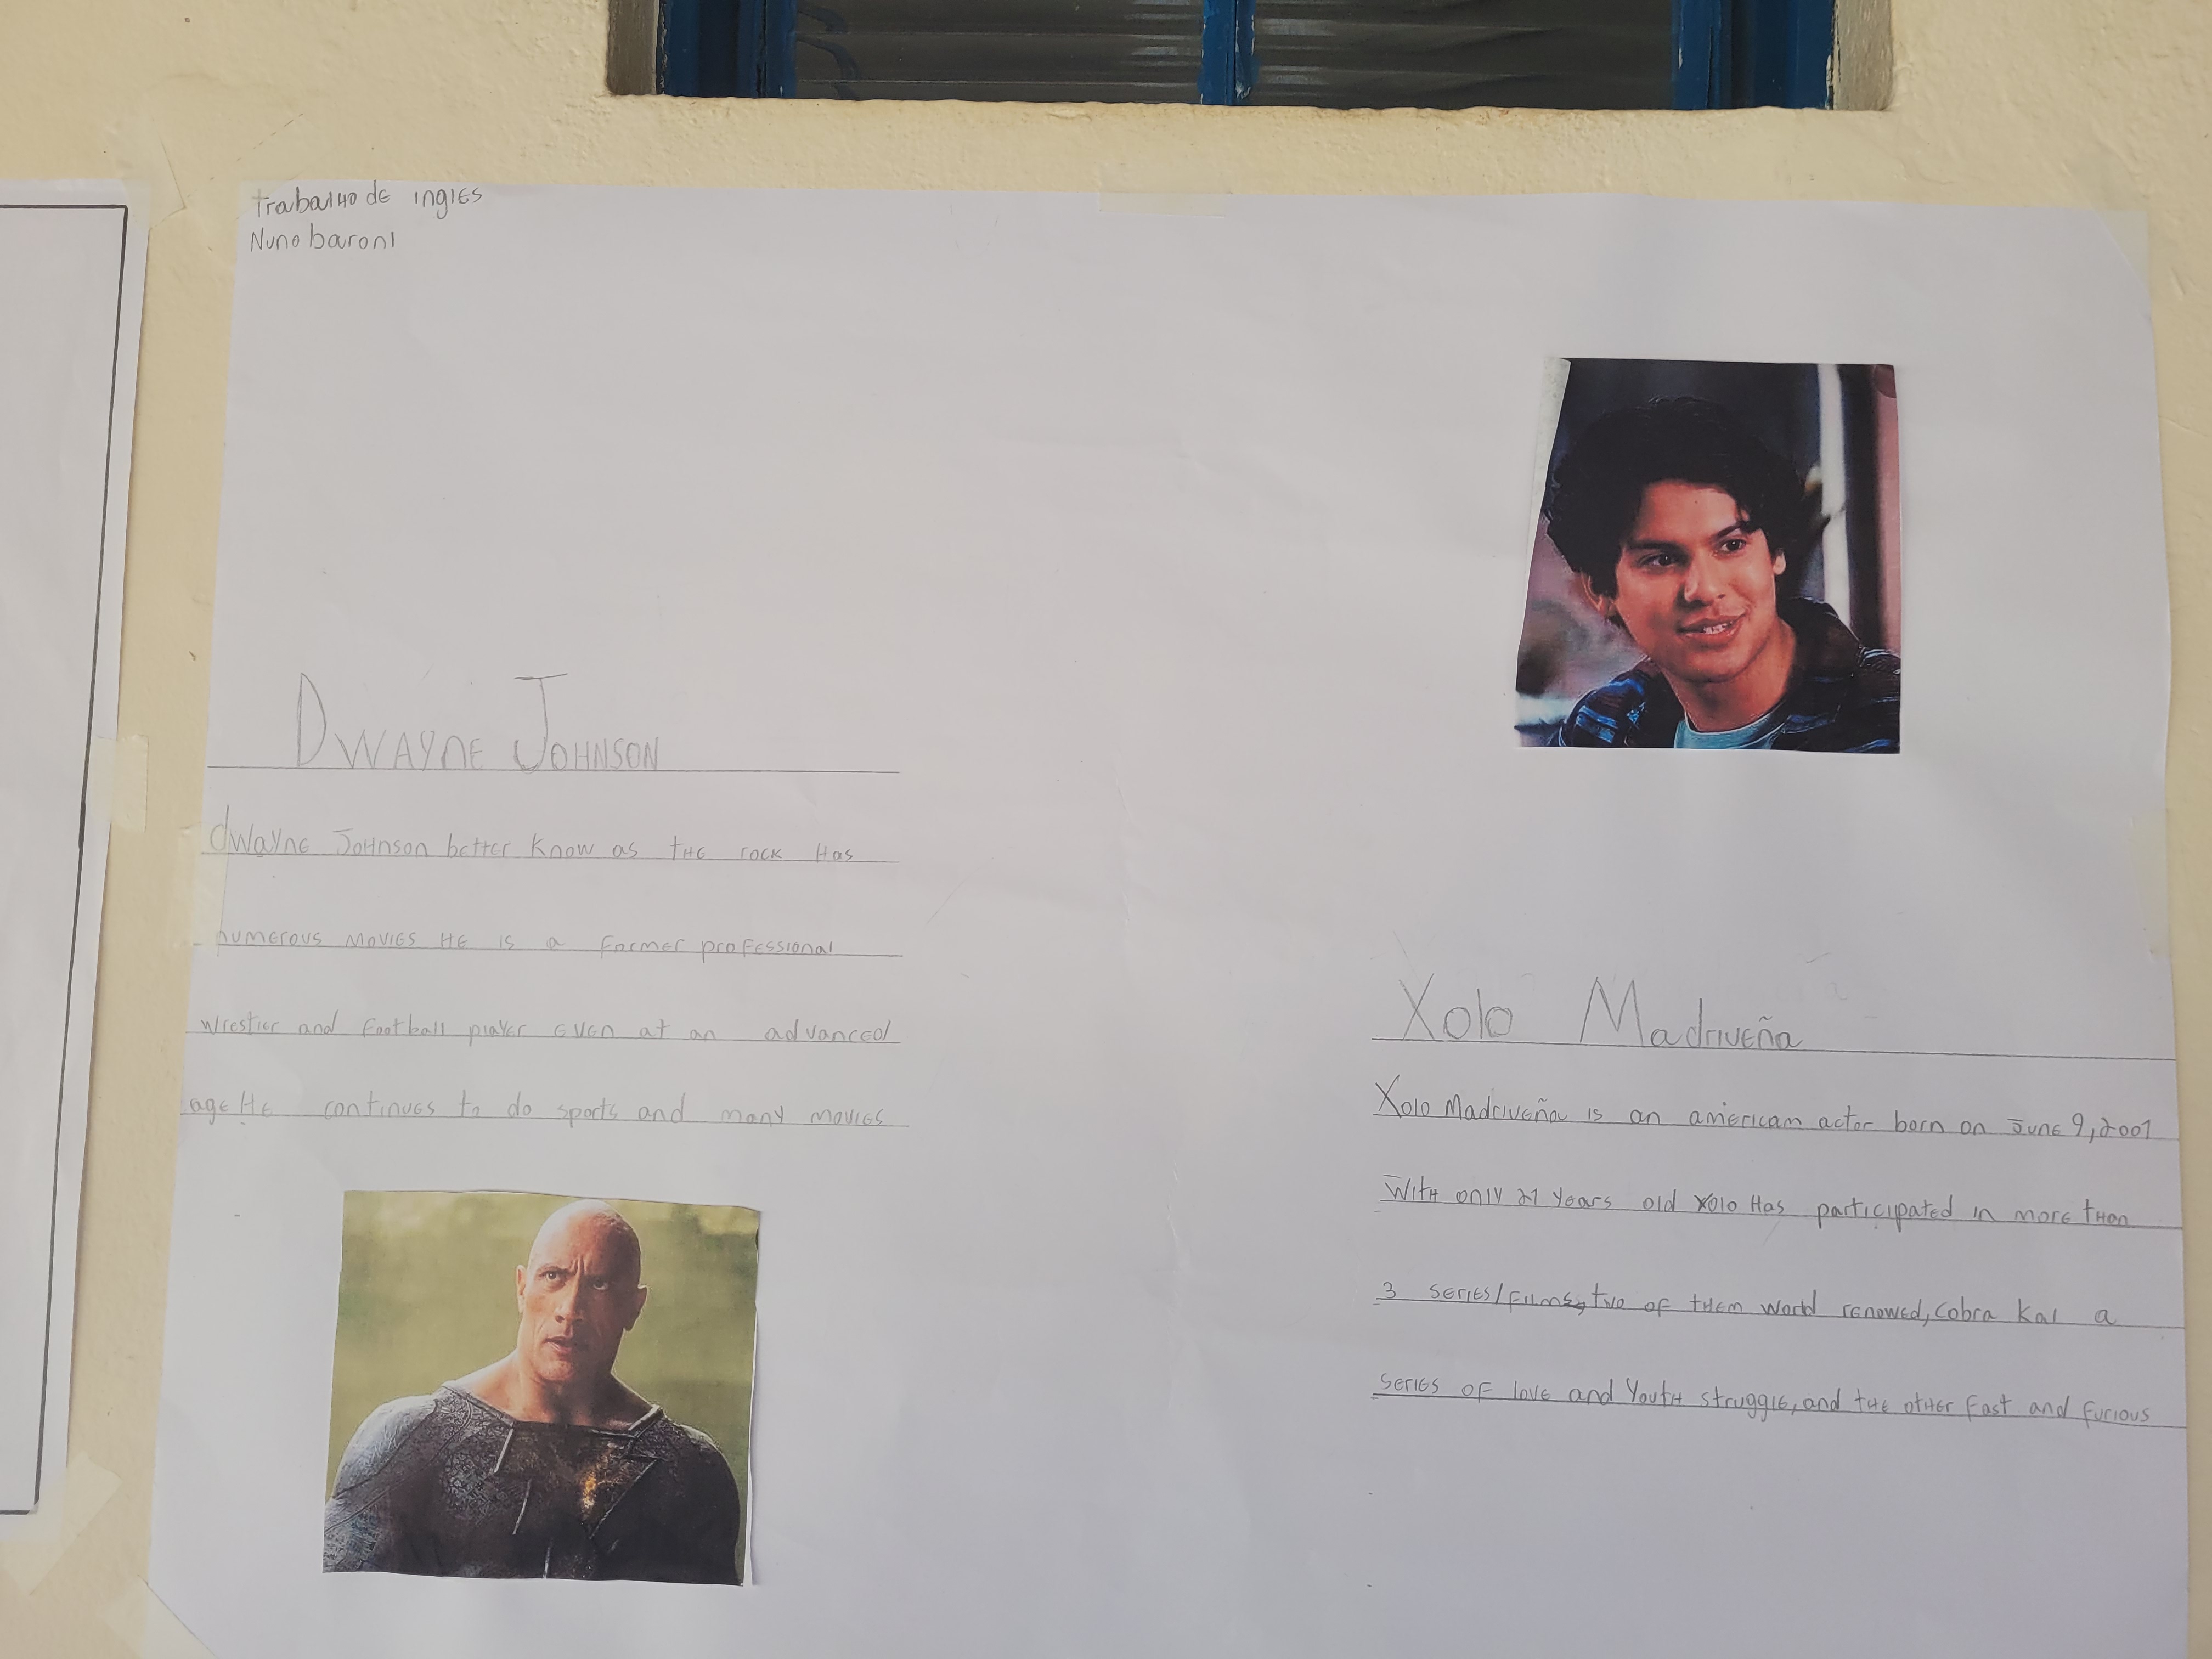 Trabalho de ingles
Nuno baroni
Dwayne Johnson
dwayne Johnson better know as the rock has
numerous movies he is a former professional
wrestler and football player even at an advanced
age He continues to do sports and many movies
Xolo Madriveña
Xolo Madriveña is an americam actor born on June 9, 2001
With only 21 years old xolo Has participated in more than
3 series/films, two of them world renowed, cobra kai a
series of love and Youth struggle, and the other fast and furious